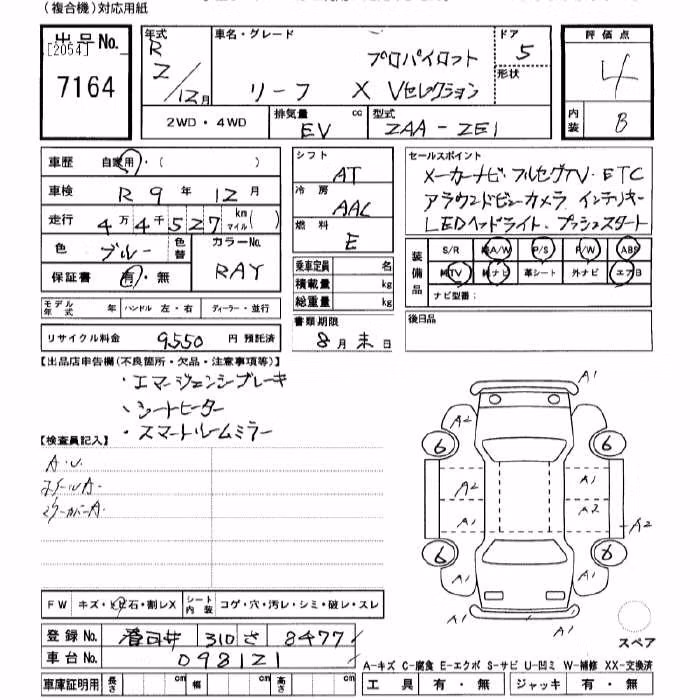 (複合機)対応用紙
出品No. [2054] 7164
年式 R 2/12月
車名・グレード プロパイロット リーフ X Vセレクション
ドア 5
形状
評価点 4
内装 B
2WD・4WD 排気量 EV cc 型式 ZAA-ZE1
車歴 自家用・( )
車検 R 9年 12月
走行 4万4千527 km マイル ( )
色 ブルー 色替 カラーNo. RAY
保証書 有・無
モデル年式 年 ハンドル 左・右 ディーラー・並行
リサイクル料金 9550 円 預託済
シフト AT
冷房 AAC
燃料 E
乗車定員 名
積載量 kg
総重量 kg
書類期限 8月末日
セールスポイント
メーカーナビ・フルセグTV・ETC
アラウンドビューカメラ インテリキー
LEDヘッドライト・プッシュスタート
装備品 S/R 純A/W P/S P/W ABS
純TV 純ナビ 革シート 外ナビ エアB
ナビ型番:
後日品
【出品店申告欄(不良箇所・欠品・注意事項等)】
・エマージェンシーブレーキ
・シートヒーター
・スマートルームミラー
【検査員記入】
A・U
ホイールA・
ミラーカバーA・
A1
A2 A1
6 6
A2 A1
A1 A2
A2
6 6
A1 A1
A1
スペア
FW キズ・ヒビ・石・割レX シート内装 コゲ・穴・汚レ・シミ・破レ・スレ
登録No. 310 さ 8477
車台No. 098121
A-キズ C-腐食 E-エクボ S-サビ U-凹ミ W-補修 XX-交換済
車庫証明用 長さ cm 幅 cm 高さ cm 工具 有・無 ジャッキ 有・無